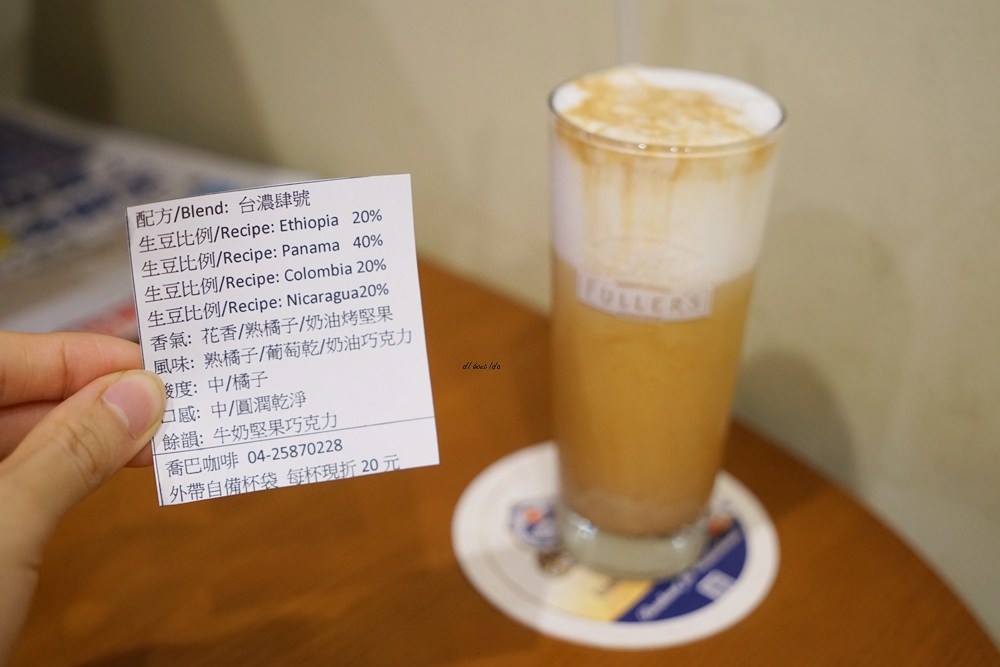 配方/Blend: 台濃肆號
生豆比例/Recipe: Ethiopia 20%
生豆比例/Recipe: Panama 40%
生豆比例/Recipe: Colombia 20%
生豆比例/Recipe: Nicaragua20%
香氣: 花香/熟橘子/奶油烤堅果
風味: 熟橘子/葡萄乾/奶油巧克力
酸度: 中/橘子
口感: 中/圓潤乾淨
餘韻: 牛奶堅果巧克力
喬巴咖啡 04-25870228
外帶自備杯袋 每杯現折 20 元
FULLER'S